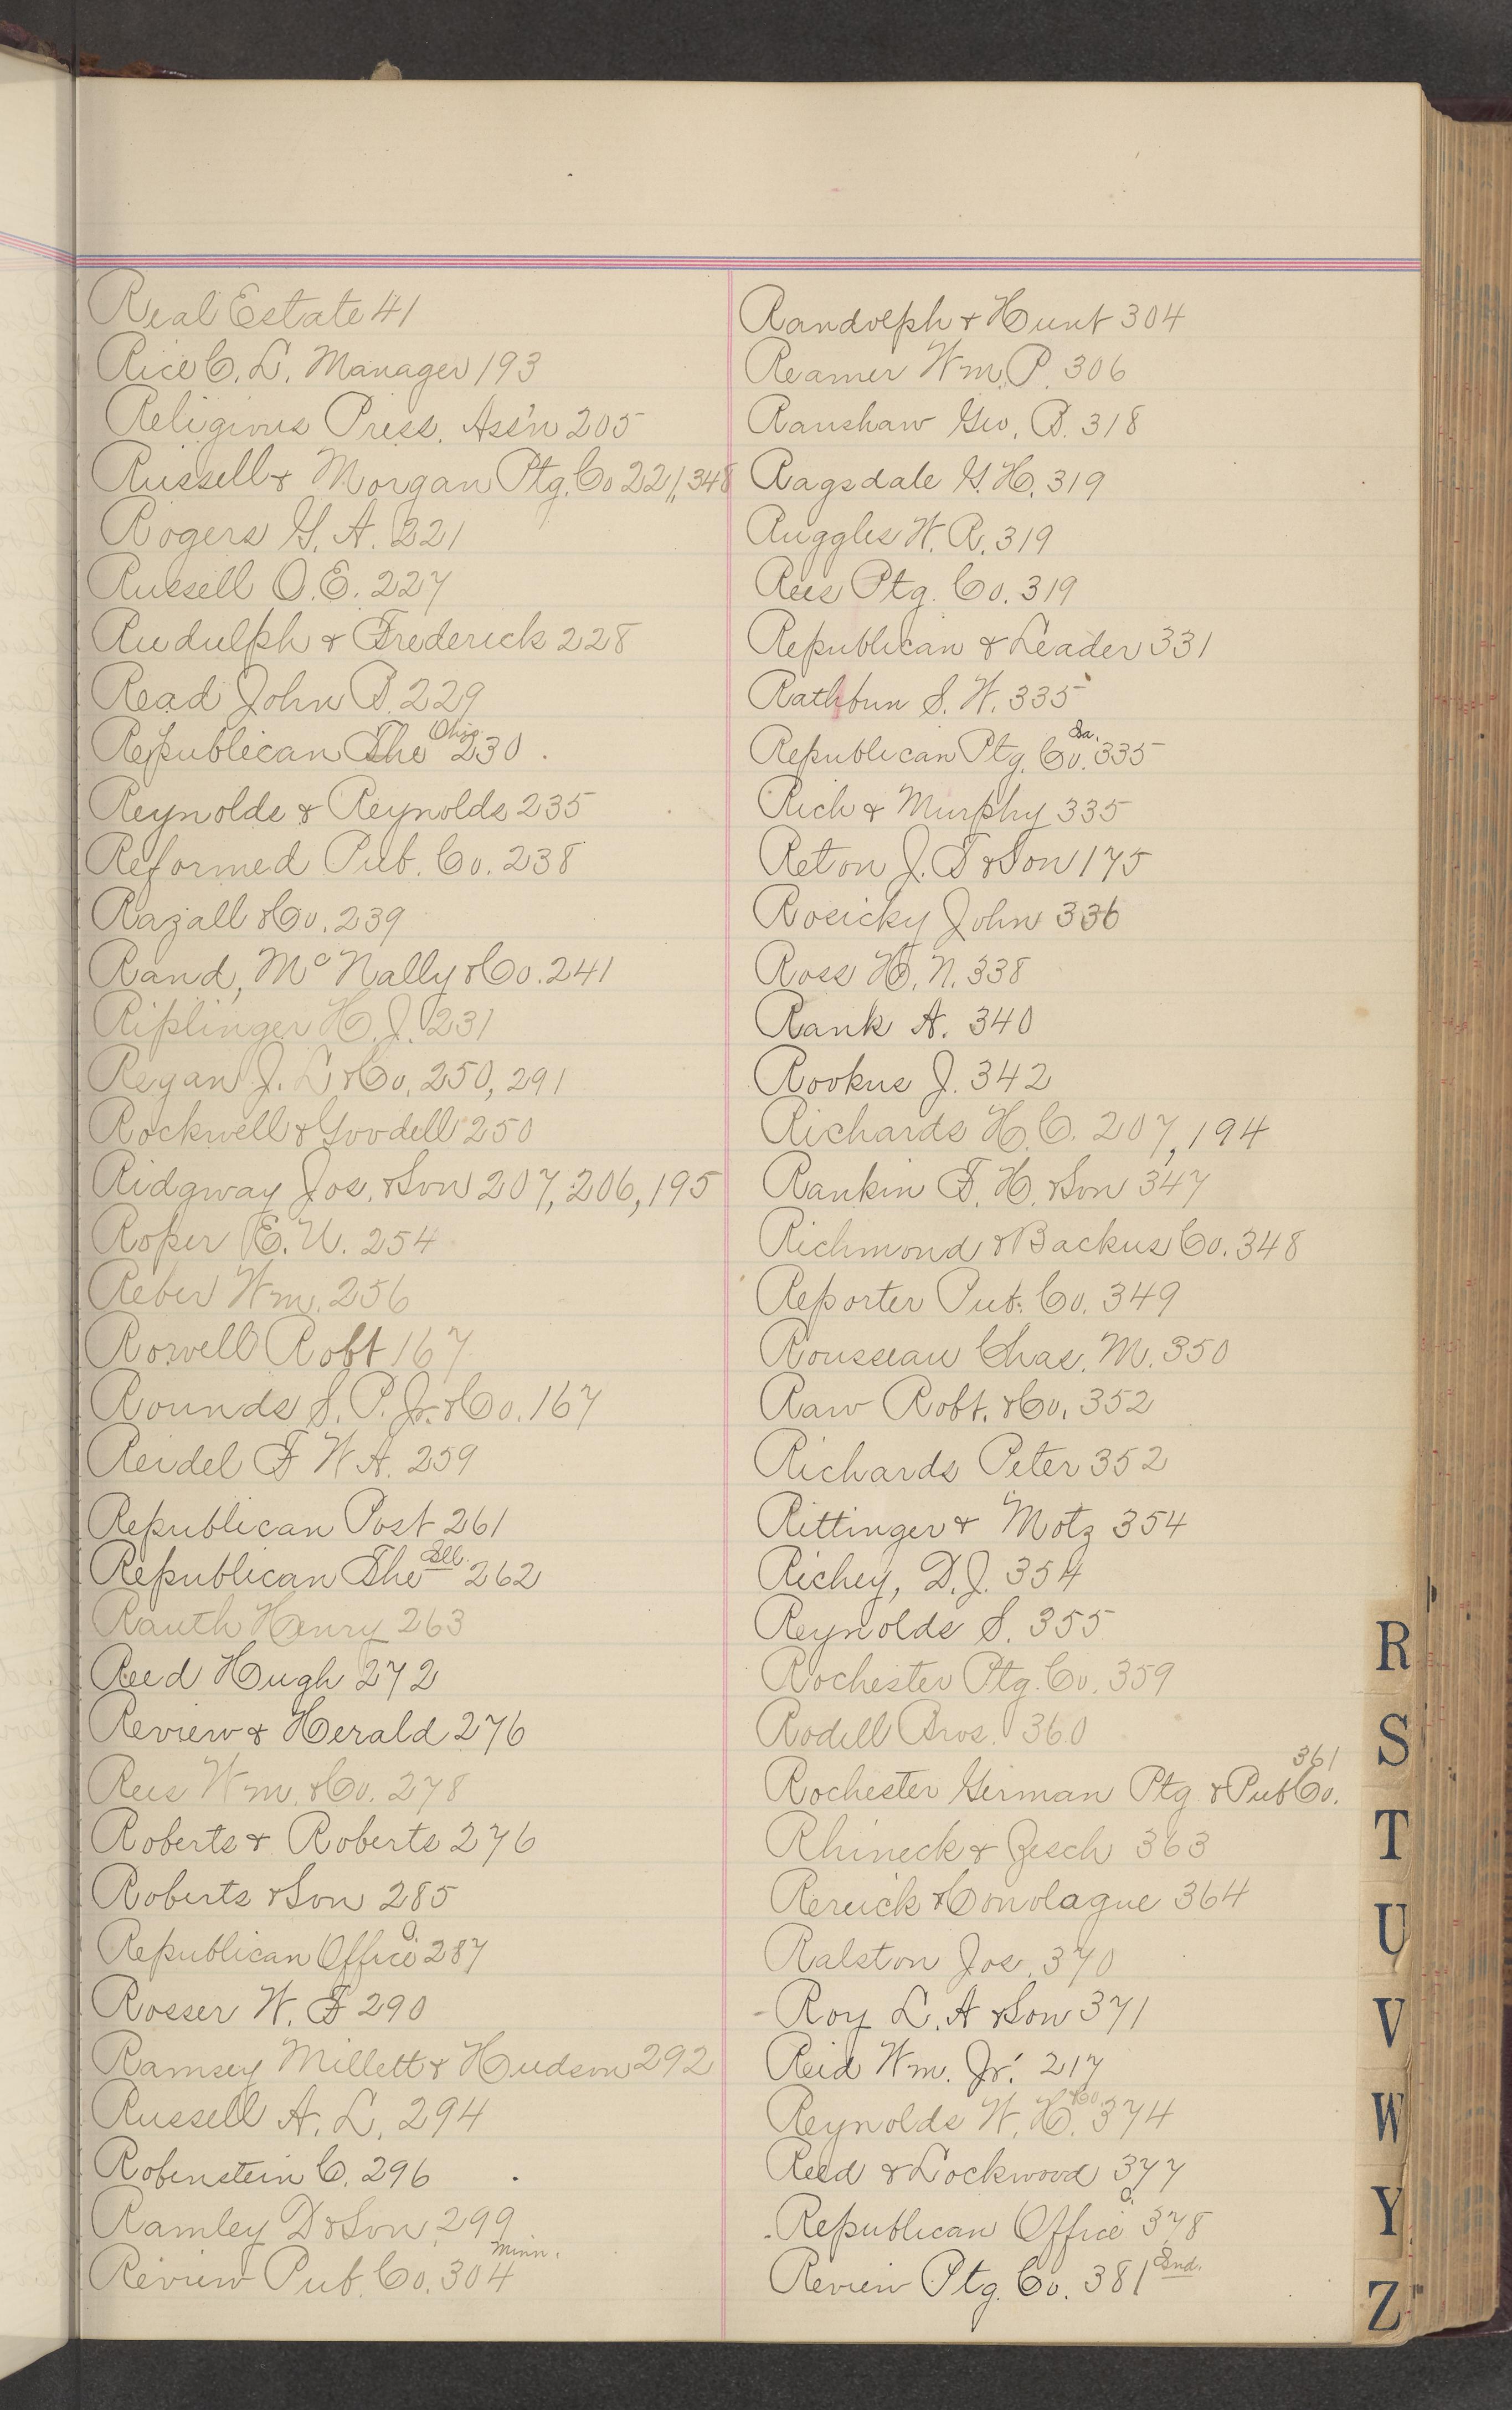 Real Estate 41
Rice C. L. Manager 193
Religious Press. Ass'n 205
Russell & Morgan Ptg. Co 221, 348
Rogers G. A. 221
Russell O. E. 227
Rudulph & Frederick 228
Read John B. 229
Republican The Ohio 230
Reynolds & Reynolds 235
Reformed Pub. Co. 238
Razall & Co. 239
Rand, McNally & Co. 241
Riplinger H. J. 231
Regan J. L & Co. 250, 291
Rockwell & Goodell 250
Ridgway Jos. & Son 207, 206, 195
Roper E. U. 254
Reber Wm. 256
Rowell Robt 167
Rounds S. P. Jr. & Co. 167
Reidel F W A. 259
Republican Post 261
Republican The Ill. 262
Rauth Henry 263
Reed Hough 272
Review & Herald 276
Rees Wm. & Co. 278
Roberts & Roberts 276
Roberts & Son 285
Republican Office O. 287
Rosser W. F 290
Ramsey Millett & Hudson 292
Russell A. L. 294
Robenstein C. 296
Ramley D & Son 299
Review Pub. Co. 304 Minn.
Randolph & Hunt 304
Reamer Wm. P. 306
Ranshaw Geo. B. 318
Ragsdale G. H. 319
Ruggles W. R. 319
Rees Ptg. Co. 319
Republican & Leader 331
Rathbun S. W. 335
Republican Ptg. Co. Ia. 335
Rich & Murphy 335
Reton J. T & Son 175
Rosicky John 336
Ross H. N. 338
Rank A. 340
Rookus J. 342
Richards H. C. 207, 194
Rankin F. H. & Son 347
Richmond & Backus Co. 348
Reporter Pub. Co. 349
Rousseau Chas. M. 350
Raw Robt. & Co. 352
Richards Peter 352
Rittinger & Motz 354
Richey, D. J. 354
Reynolds S. 355
Rochester Ptg. Co. 359
Rodell Bros. 360
Rochester German Ptg & Pub Co. 361
Rhineck & Zesch 363
Rerick & Conolague 364
Ralston Jos. 370
Roy L. A & Son 371
Reid Wm. Jr. 217
Reynolds W. H. & Co. 374
Reed & Lockwood 377
Republican Office O. 378
Review Ptg. Co. 381 Ind.
R
S
T
U
V
W
Y
Z